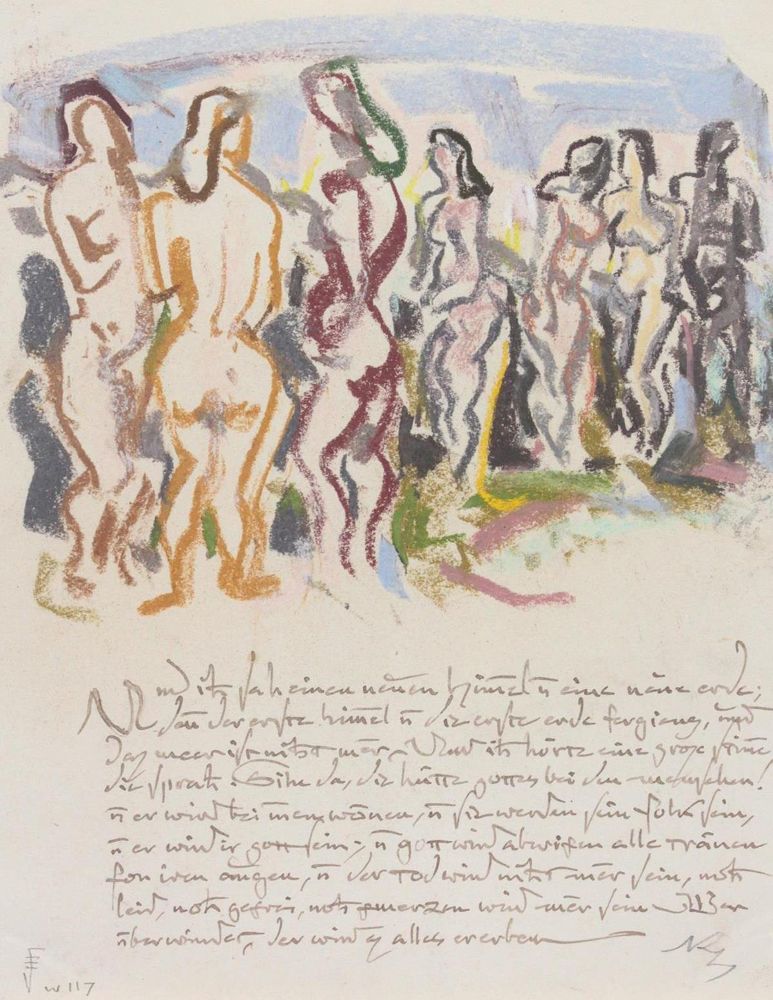 Und ich sah einen neuen himel ū eine neue erde;
den der erste himel ū die erste erde fergieng, und
daz meer ist nicht mer – Und ich hörte eine groze stime
die sprach. Sihe da, die hütte gottes bei den menschen!
ū er wird bei inen wonen, ū sie werden sein folk sein,
ū er wird ir gott sein; ū gott wird abwischen alle tränen
fon iren augen, ū der tod wird nicht mer sein, noch
leid, noch geschrei, noch schmerzen wird mer sein – Wer
überwindet, der wird es alles ererben
w 117